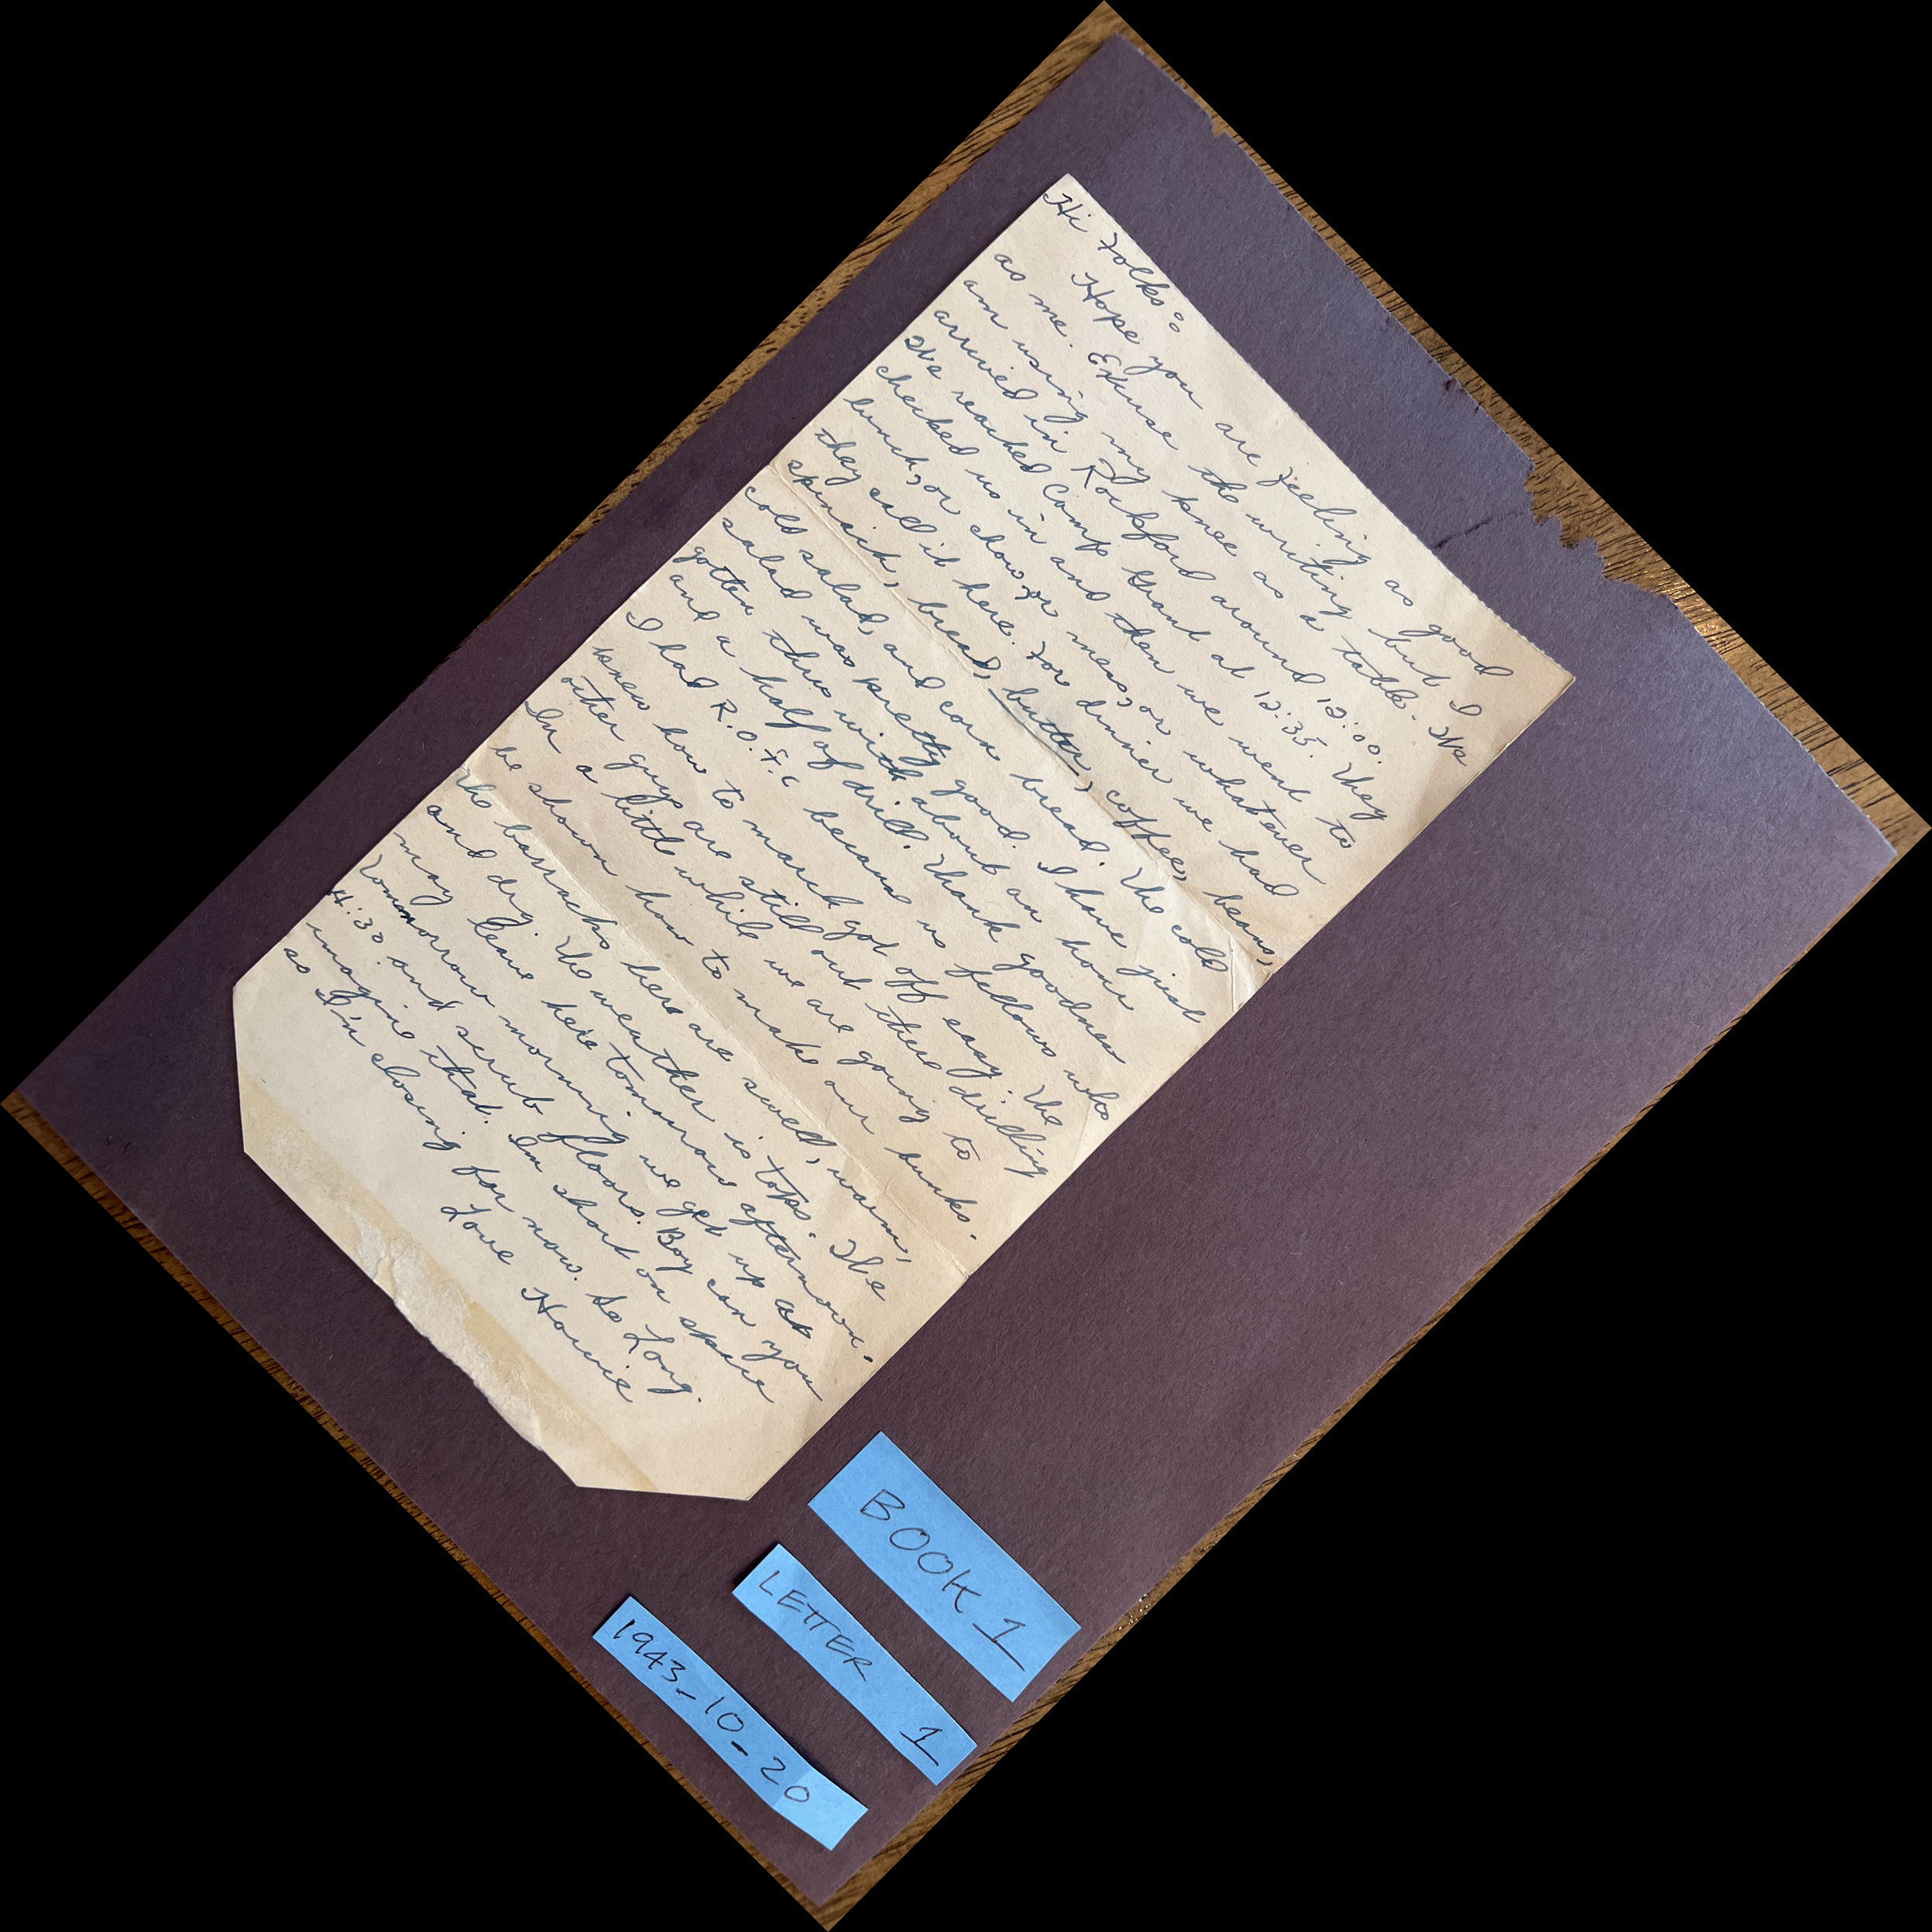 Hi Folks:
Hope you are feeling as good
as me. Excuse the writing but I
am using my knee as a table. We
arrived in Rockford around 12:00.
We reached Camp Grant at 12:35. They
checked us in and then we went to
lunch, or chow, or mess, or whatever
they call it here. For dinner we had
spinach, bread, butter, coffee, beans,
cold salad, and corn bread. The cold
salad was pretty good. I have just
gotten thru with about an hour
and a half of drill. Thank goodness
I had R.O.T.C because us fellows who
knew how to march got off easy. The
other guys are still out there drilling
In a little while we are going to
be shown how to make our bunks.
The barracks here are swell, warm,
and dry. The weather is tops. We
may leave here tommorow afternoon.
Tommorrow morning we get up at
4:30 and scrub floors. Boy can you
imagine that. Im short on space
so I'm closing for now. So Long.
Love Howie
BOOK 1
LETTER 1
1943-10-20